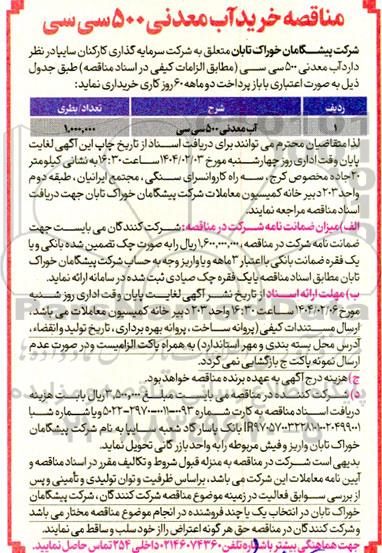 مناقصه خرید آب معدنی ۵۰۰ سی سی
شرکت پیشگامان خوراک تابان متعلق به شرکت سرمایه گذاری کارکنان سایپا در نظر
دارد آب معدنی ۵۰۰ سی سی (مطابق الزامات کیفی در اسناد مناقصه) طبق جدول
ذیل به صورت اعتباری با باز پرداخت دو ماهه ۶۰ روز کاری خریداری نماید:
ردیف شرح تعداد/بطری
۱ آب معدنی ۵۰۰ سی سی ۱,۰۰۰,۰۰۰
لذا متقاضیان محترم می توانند برای دریافت اسناد از تاریخ چاپ این آگهی لغایت
پایان وقت اداری روز چهارشنبه مورخ ۱۴۰۴/۰۲/۰۳ ساعت ۱۶:۳۰ به نشانی کیلومتر
۲۰ جاده مخصوص کرج ، سه راه کاروانسرای سنگی ، مجتمع ایرانیان ، طبقه دوم
واحد ۲۰۳ دبیر خانه کمیسیون معاملات شرکت پیشگامان خوراک تابان جهت دریافت
اسناد مناقصه مراجعه نمایند.
الف) میزان ضمانت نامه شرکت در مناقصه: شرکت کنندگان می بایست جهت
ضمانت نامه شرکت در مناقصه ، ۱,۶۰۰,۰۰۰,۰۰۰ ریال را به صورت چک تضمین شده بانکی و یا
یک فقره ضمانت بانکی با اعتبار ۳ ماهه و یا واریز وجه به حساب شرکت پیشگامان خوراک
تابان مطابق اسناد مناقصه یا یک فقره چک صیادی ثبت شده در سامانه ارائه نماید.
ب) مهلت ارائه اسناد از تاریخ نشر آگهی لغایت پایان وقت اداری روز شنبه
مورخ ۱۴۰۴/۰۲/۰۶ ساعت ۱۶:۳۰ واحد ۲۰۳ دبیر خانه کمیسیون معاملات می باشد،
ارسال مستندات کیفی (پروانه ساخت ، پروانه بهره برداری ، تاریخ تولید و انقضاء ،
آدرس محل بسته بندی و مهر استاندارد) به همراه پاکت الزامیست و در صورت عدم
ارسال نمونه پاکت ج بازگشایی نمی گردد.
ج) هزینه درج آگهی به عهده برنده مناقصه خواهد بود.
د) شرکت کننده در مناقصه می بایست مبلغ ۳,۵۰۰,۰۰۰ ریال بابت هزینه
دریافت اسناد مناقصه به کارت شماره
بانک پاسارگاد شعبه سایپا به نام شرکت پیشگامان
خوراک تابان واریز و فیش مربوطه را به واحد بازرگانی تحویل نماید.
بدیهی است شرکت در مناقصه به منزله قبول شروط و تکالیف مقرر در اسناد مناقصه و
آیین نامه معاملات این شرکت می باشد، براساس ظرفیت و توان تولیدی و تأمینی و پس
از بررسی سوابق فعالیت در زمینه موضوع مناقصه شرکت کنندگان ، شرکت پیشگامان
خوراک تابان در انتخاب یک یا چند فروشنده در انجام موضوع مناقصه مختار می باشد
و شرکت کنندگان در مناقصه حق هر گونه اعتراض را از خود سلب و ساقط می نمایند.
جهت هماهنگی بیشتر با شماره تلفن ۰۲۱۴۶۰۷۴۳۶۰ داخلی ۲۵۴ تماس حاصل نمایید.